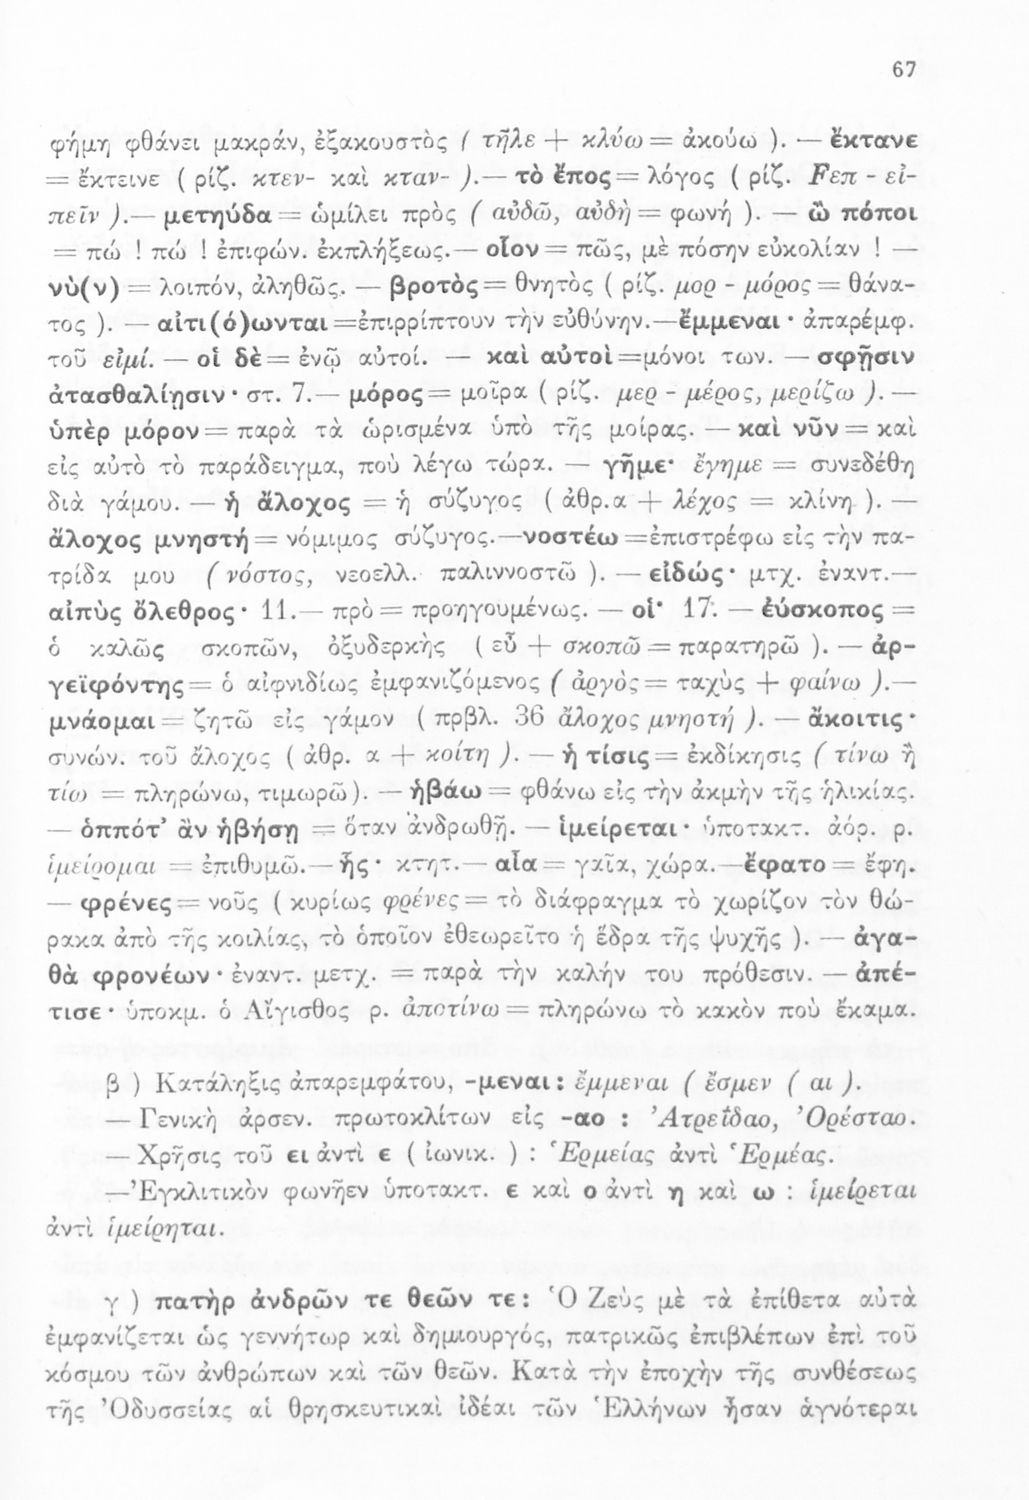 67
φήμη φθάνει μακράν, ἐξακουστὸς ( τῆλε + κλύω = ἀκούω ). — ἔκτανε
= ἔκτεινε ( ρίζ. κτεν- καὶ κταν- ).— τὸ ἔπος = λόγος ( ρίζ. Fεπ - εἰ-
πεῖν ).— μετηύδα = ὡμίλει πρὸς ( αὐδῶ, αὐδὴ = φωνή ). — ὢ πόποι
= πώ ! πώ ! ἐπιφών. ἐκπλήξεως.— οἷον = πῶς, μὲ πόσην εὐκολίαν ! —
νὺ(ν) = λοιπόν, ἀληθῶς. — βροτὸς = θνητὸς ( ρίζ. μορ - μόρος = θάνα-
τος ). — αἰτι(ό)ωνται =ἐπιρρίπτουν τὴν εὐθύνην.—ἔμμεναι · ἀπαρέμφ.
τοῦ εἰμί. — οἱ δὲ = ἐνῷ αὐτοί. — καὶ αὐτοὶ =μόνοι των. — σφῇσιν
ἀτασθαλίῃσιν · στ. 7.— μόρος = μοῖρα ( ρίζ. μερ - μέρος, μερίζω ). —
ὑπὲρ μόρον = παρὰ τὰ ὡρισμένα ὑπὸ τῆς μοίρας. — καὶ νῦν = καὶ
εἰς αὐτὸ τὸ παράδειγμα, ποὺ λέγω τώρα. — γῆμε· ἔγημε = συνεδέθη
διὰ γάμου. — ἡ ἄλοχος = ἡ σύζυγος ( ἀθρ.α + λέχος = κλίνη ). —
ἄλοχος μνηστή = νόμιμος σύζυγος.—νοστέω =ἐπιστρέφω εἰς τὴν πα-
τρίδα μου ( νόστος, νεοελλ. παλιννοστῶ ). — εἰδώς· μτχ. ἐναντ.—
αἰπὺς ὄλεθρος· 11.— πρὸ = προηγουμένως. — οἱ· 17. — ἐύσκοπος =
ὁ καλῶς σκοπῶν, ὀξυδερκὴς ( εὖ + σκοπῶ = παρατηρῶ ). — ἀρ-
γεϊφόντης = ὁ αἰφνιδίως ἐμφανιζόμενος ( ἀργὸς = ταχὺς + φαίνω ).—
μνάομαι = ζητῶ εἰς γάμον ( πρβλ. 36 ἄλοχος μνηστή ). — ἄκοιτις ·
συνών. τοῦ ἄλοχος ( ἀθρ. α + κοίτη ). — ἡ τίσις = ἐκδίκησις ( τίνω ἢ
τίω = πληρώνω, τιμωρῶ). — ἡβάω = φθάνω εἰς τὴν ἀκμὴν τῆς ἡλικίας.
— ὁππότ’ ἂν ἡβήσῃ = ὅταν ἀνδρωθῇ. — ἱμείρεται · ὑποτακτ. ἀόρ. ρ.
ἱμείρομαι = ἐπιθυμῶ.— ἧς · κτητ.— αἶα = γαῖα, χώρα.—ἔφατο = ἔφη.
— φρένες = νοῦς ( κυρίως φρένες = τὸ διάφραγμα τὸ χωρίζον τὸν θώ-
ρακα ἀπὸ τῆς κοιλίας, τὸ ὁποῖον ἐθεωρεῖτο ἡ ἕδρα τῆς ψυχῆς ). — ἀγα-
θὰ φρονέων · ἐναντ. μετχ. = παρὰ τὴν καλήν του πρόθεσιν. — ἀπέ-
τισε · ὑποκμ. ὁ Αἴγισθος ρ. ἀποτίνω = πληρώνω τὸ κακὸν ποὺ ἔκαμα.
β ) Κατάληξις ἀπαρεμφάτου, -μεναι : ἔμμεναι ( ἔσμεν ( αι ).
— Γενικὴ ἀρσεν. πρωτοκλίτων εἰς -αο : Ἀτρεΐδαο, Ὀρέσταο.
— Χρῆσις τοῦ ει ἀντὶ ε ( ἰωνικ. ) : Ἑρμείας ἀντὶ Ἑρμέας.
—Ἐγκλιτικὸν φωνῆεν ὑποτακτ. ε καὶ ο ἀντὶ η καὶ ω : ἱμείρεται
ἀντὶ ἱμείρηται.
γ ) πατὴρ ἀνδρῶν τε θεῶν τε : Ὁ Ζεὺς μὲ τὰ ἐπίθετα αὐτὰ
ἐμφανίζεται ὡς γεννήτωρ καὶ δημιουργός, πατρικῶς ἐπιβλέπων ἐπὶ τοῦ
κόσμου τῶν ἀνθρώπων καὶ τῶν θεῶν. Κατὰ τὴν ἐποχὴν τῆς συνθέσεως
τῆς Ὀδυσσείας αἱ θρησκευτικαὶ ἰδέαι τῶν Ἑλλήνων ἦσαν ἁγνότεραι